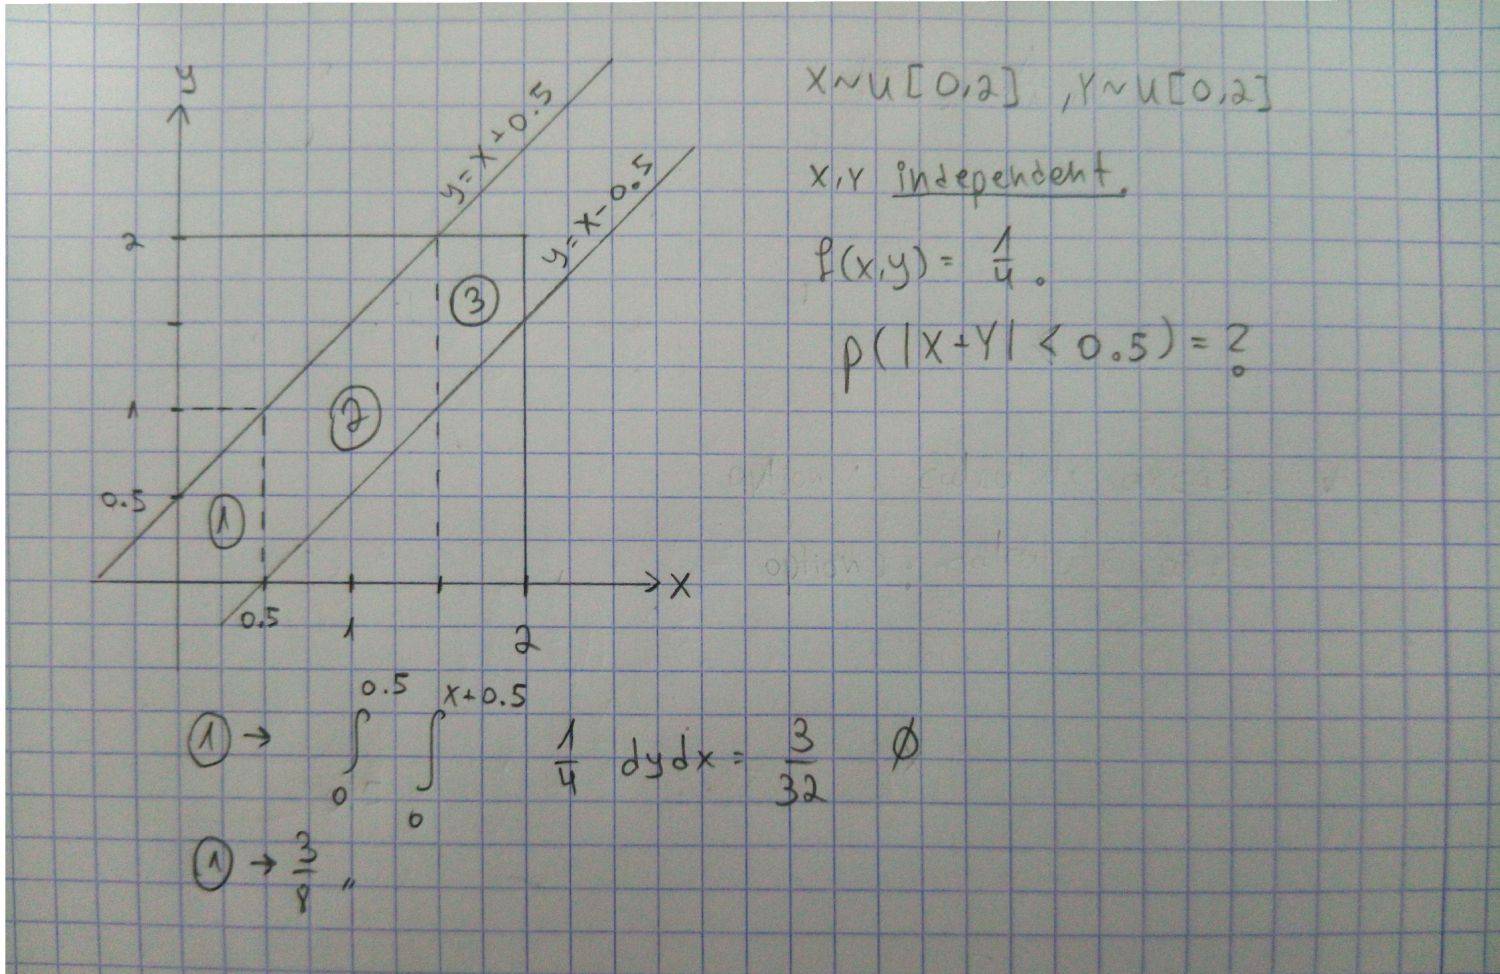 y
y = x + 0.5
y = x - 0.5
2
3
2
1
0.5
1
x
0.5
1
2
X ~ U [0,2] , Y ~ U [0,2]
X, Y independent.
f(x,y) = 1/4 .
p( |X + Y| < 0.5 ) = ?
① → ∫_0^{0.5} ∫_0^{x+0.5} 1/4 dy dx = 3/32 ∅
① → 3/8 "